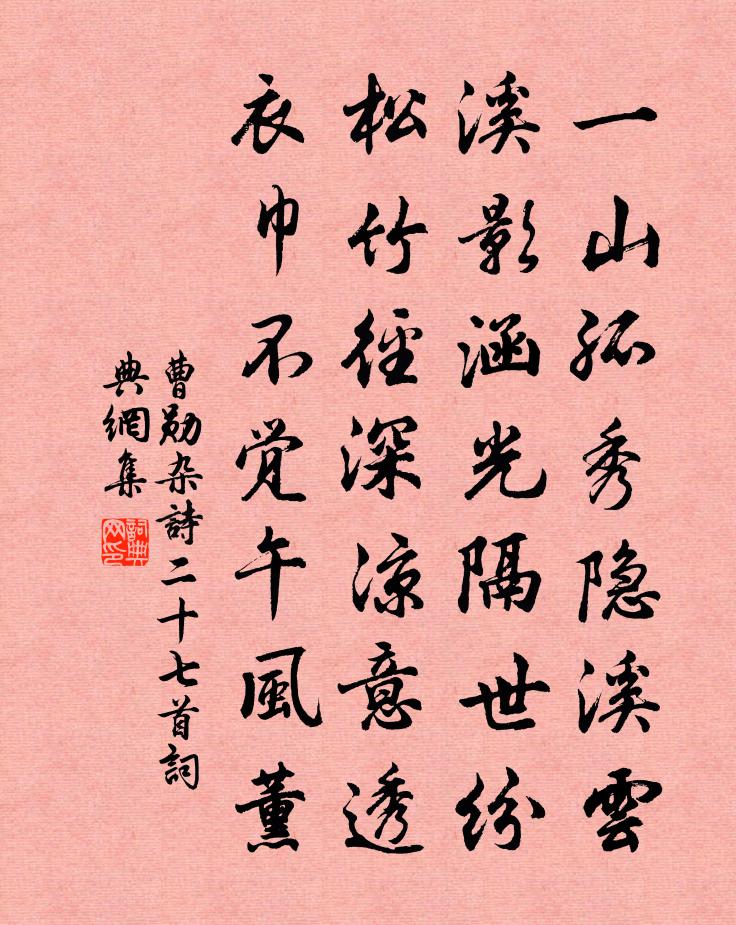 一山孤秀隐溪雲
溪影涵光隔世纷
松竹径深凉意透
衣巾不覚午風薰
曹勋杂詩二十七首詞
典網集
詞典网印